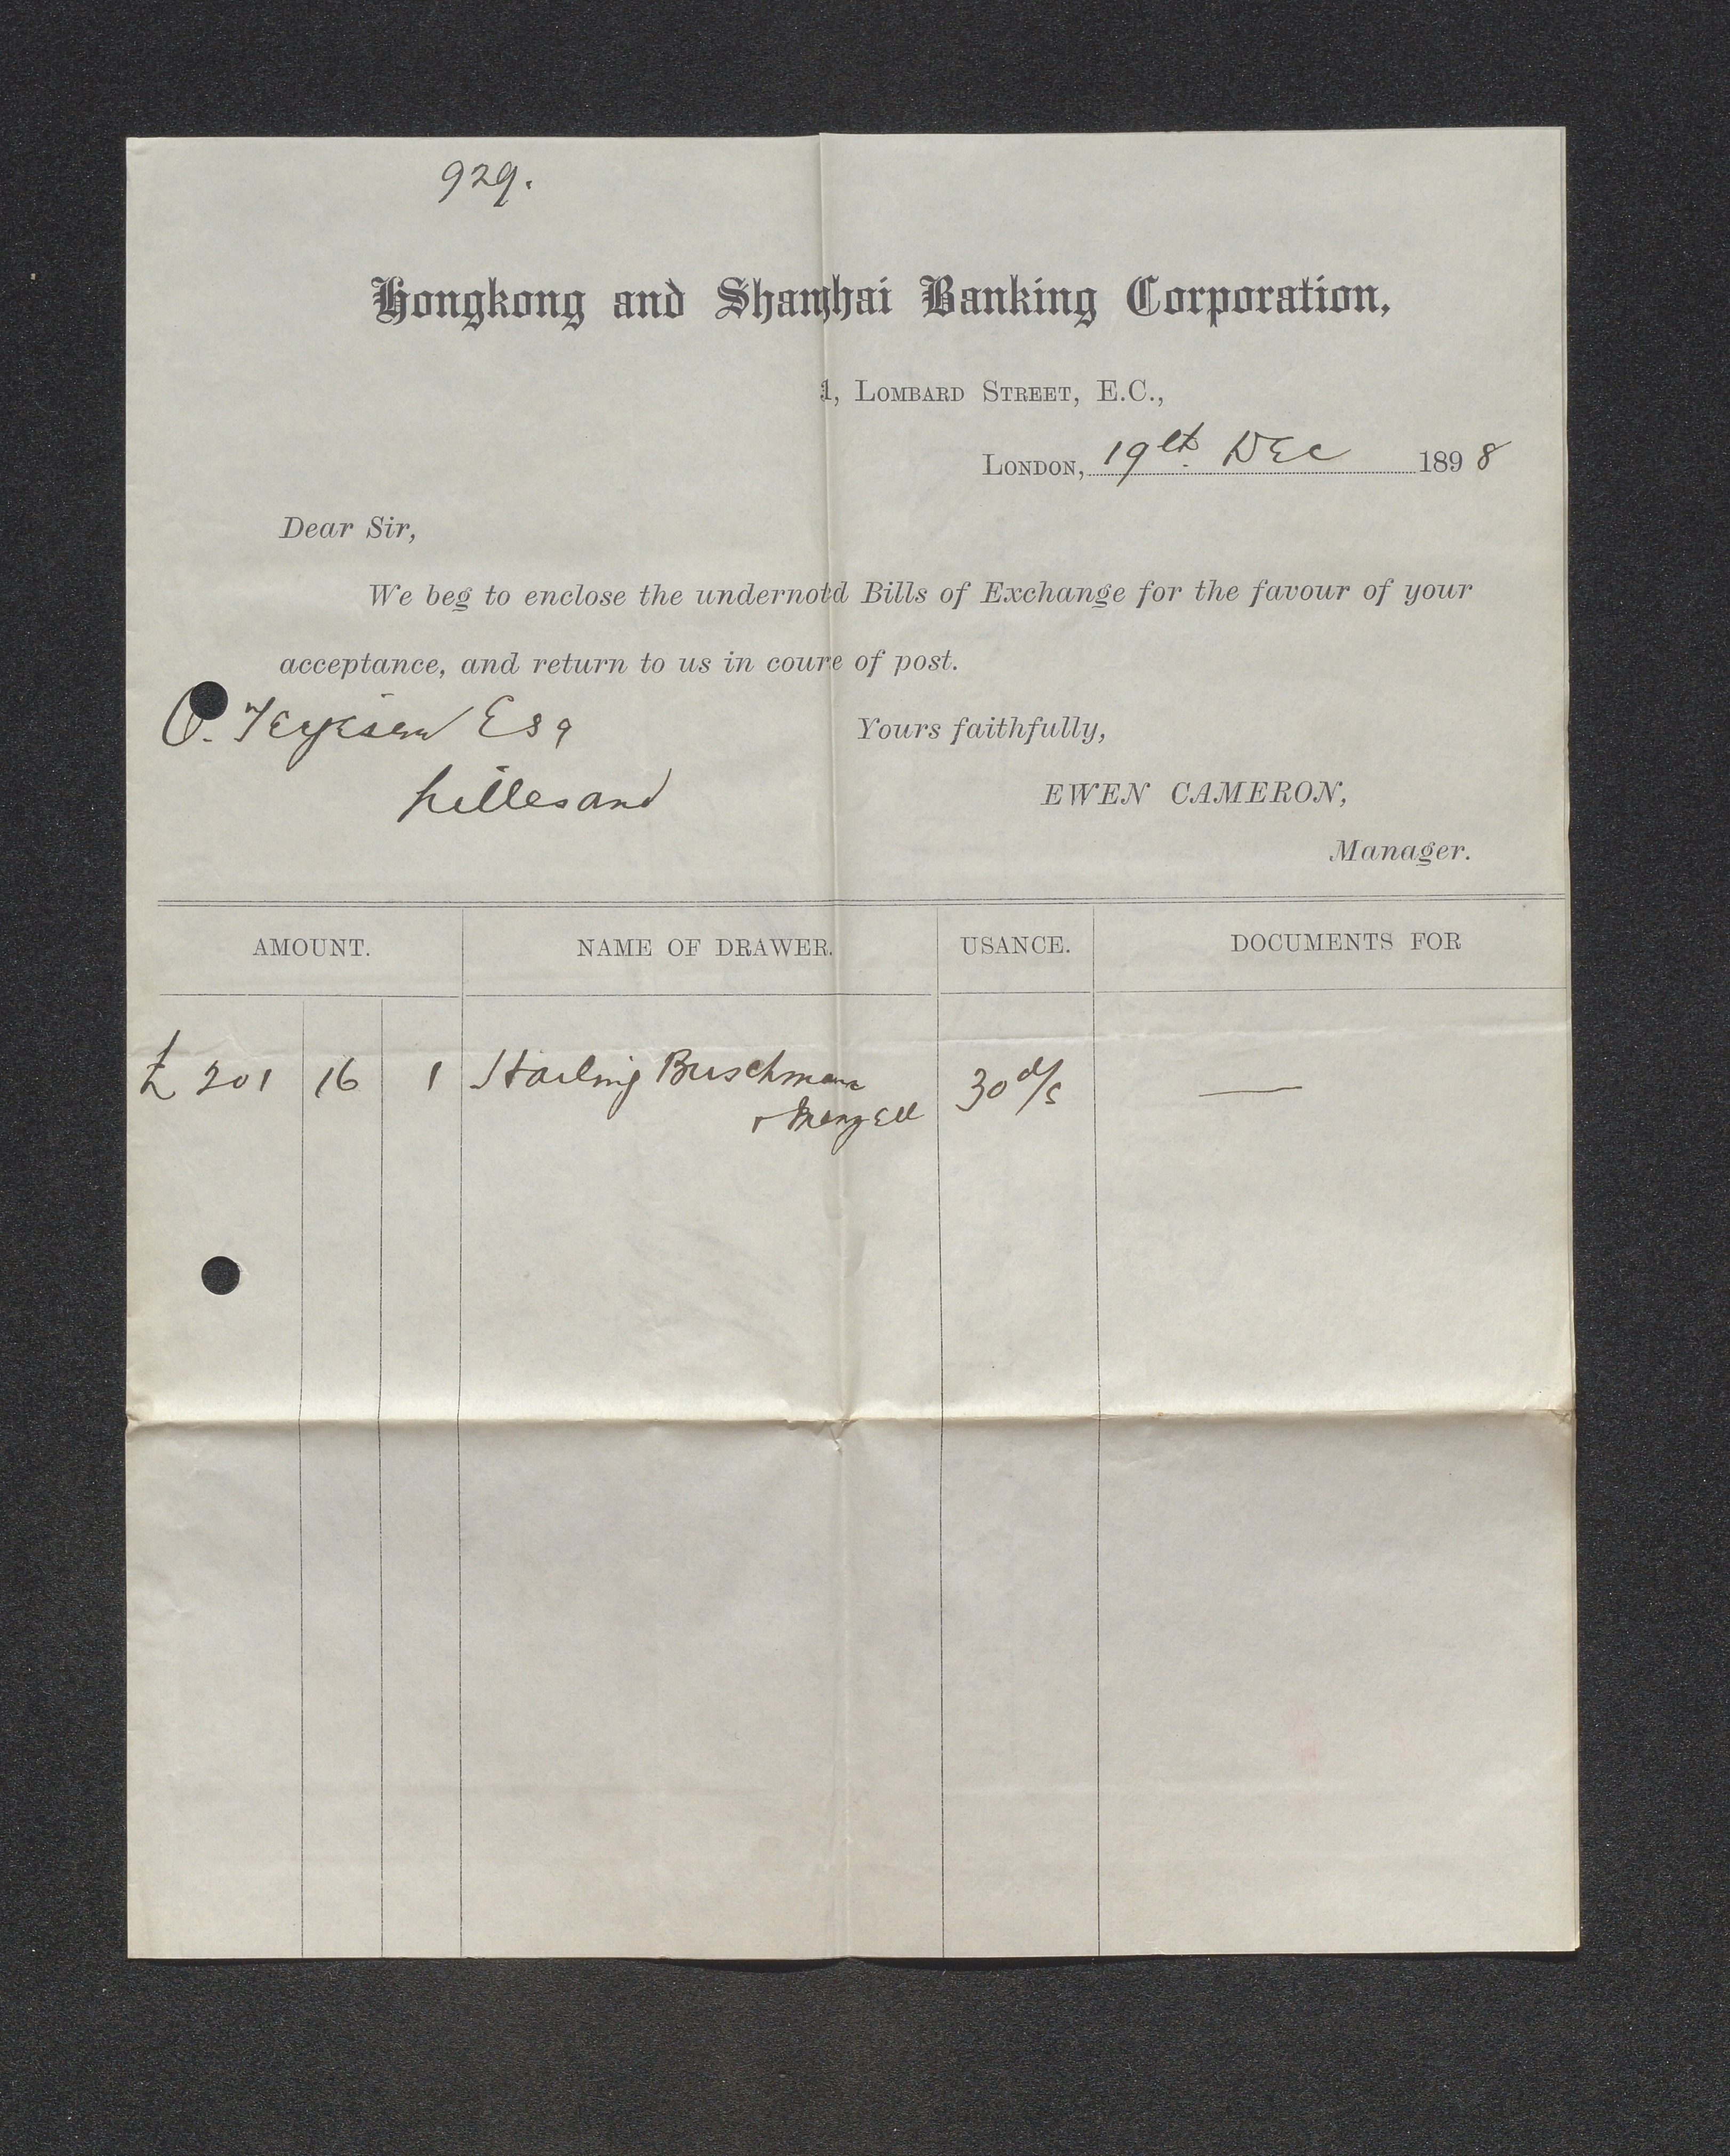 929.
Hongkong and Shanghai Banking Corporation,
1, LOMBARD STREET, E.C.,
LONDON, 19th. DEC 1898
Dear Sir,
We beg to enclose the undernoted Bills of Exchange for the favour of your
acceptance, and return to us in course of post.
O. Terjesen Esq
Yours faithfully,
Lillesand
EWEN CAMERON,
Manager.
AMOUNT. NAME OF DRAWER. USANCE. DOCUMENTS FOR
£ 201 16 1 Harling Buschmann 30 d/s —
& Menzell